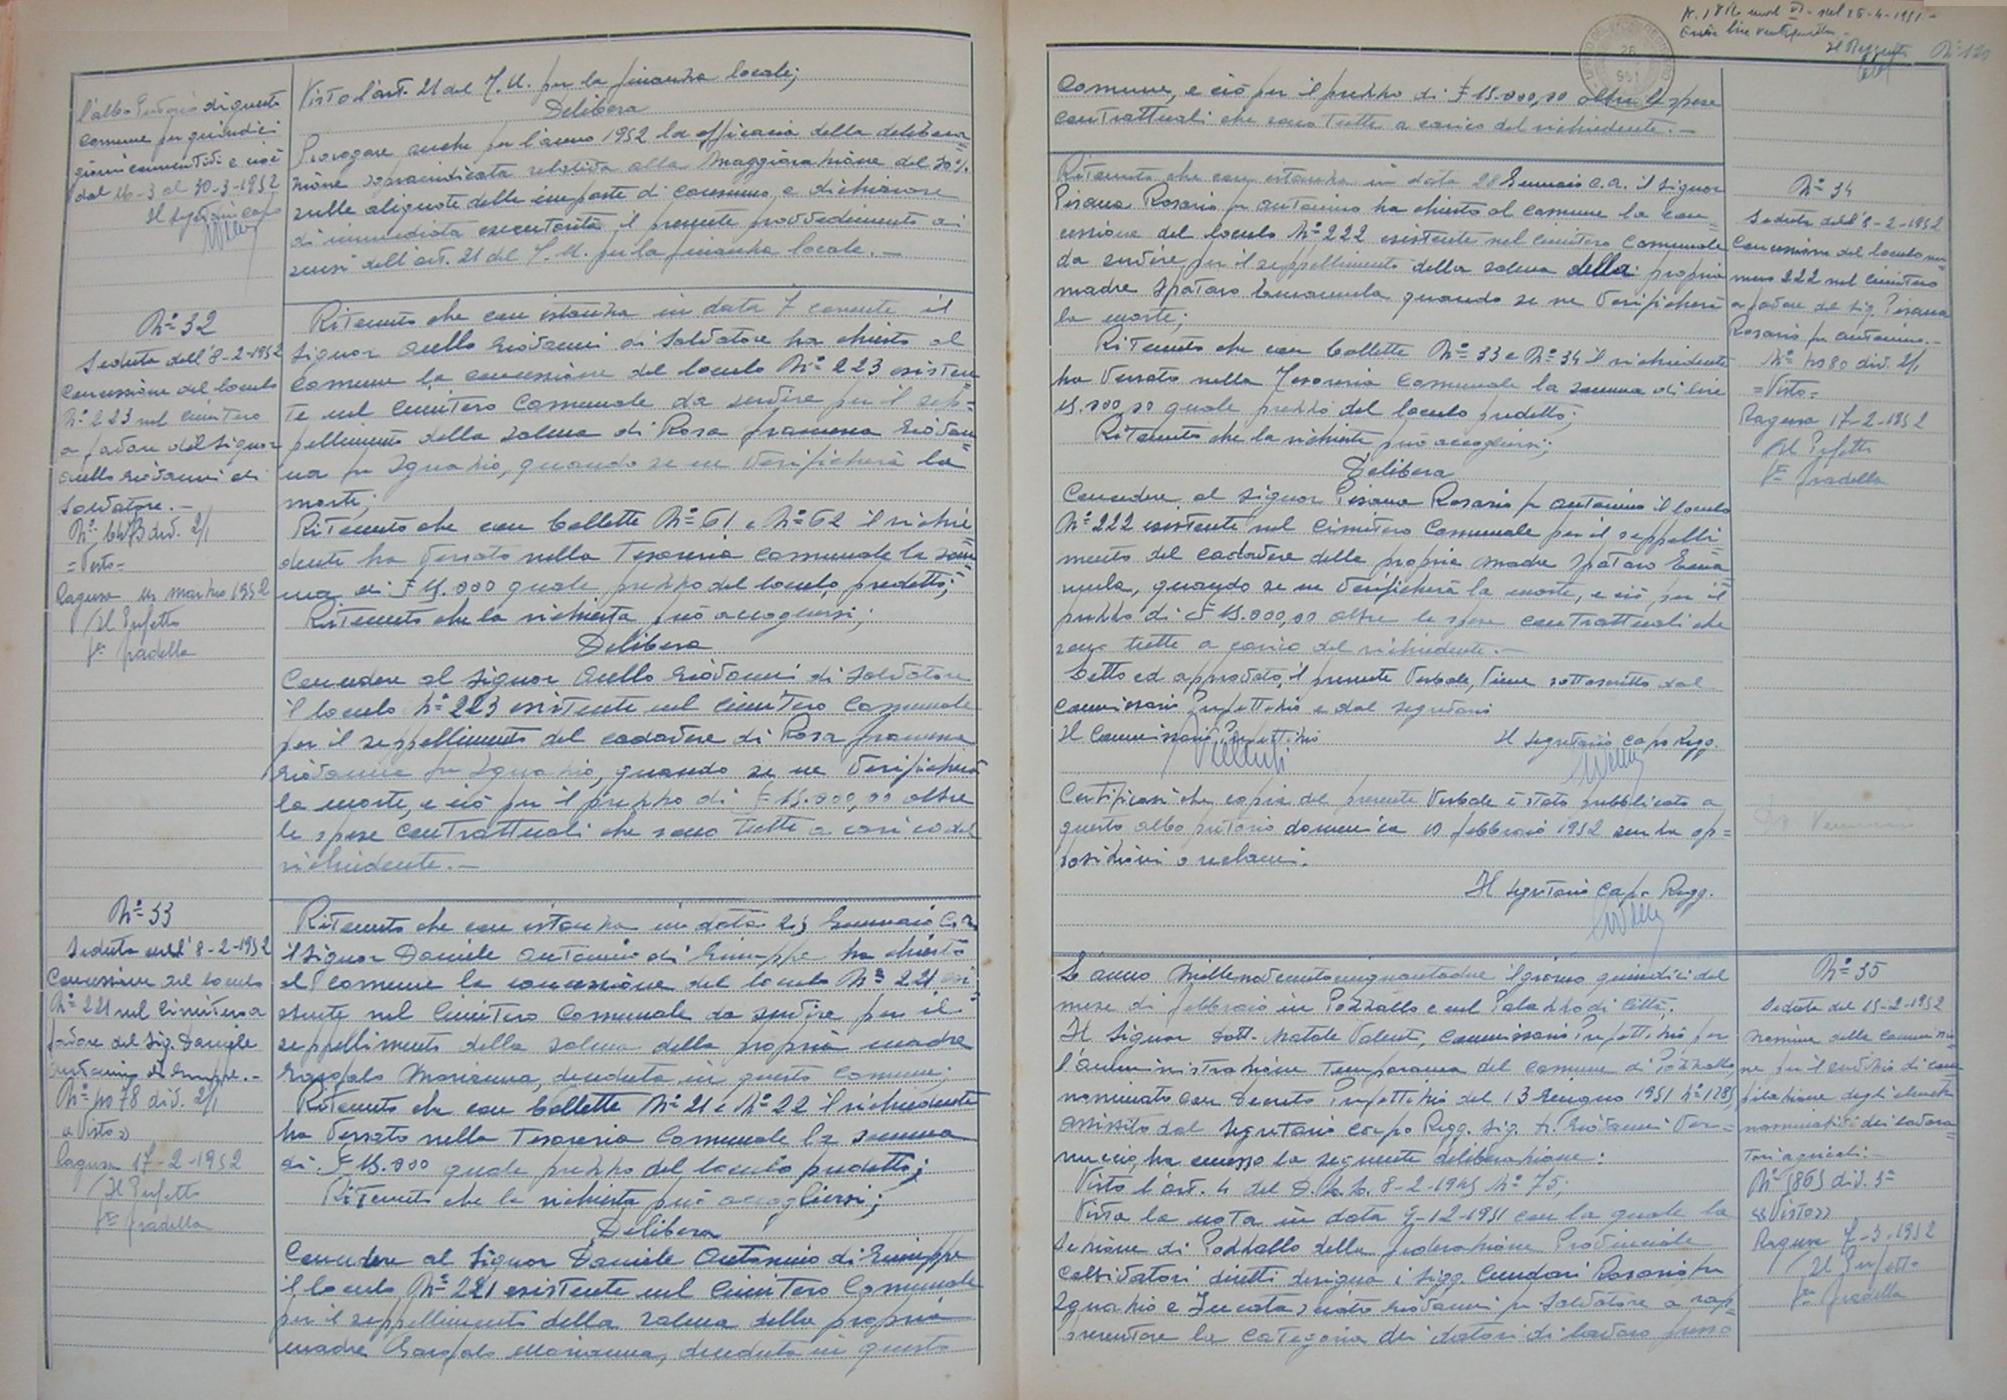 l'albo Pretorio di questo
Comune per quindici
giorni consecutivi e cioè
dal 16-3 al 30-3-1952
Il Segretario capo
Visto l'art. 21 del T. U. per la finanza locale;
Delibera
Prorogare anche per l'anno 1952 la efficacia della delibera=
zione sopraindicata relativa alla maggiorazione del 30%
sulle aliquote delle imposte di consumo e dichiarare
di immediata esecutorietà il presente provvedimento ai
sensi dell'art. 21 del T. U. per la finanza locale.—
N° 32
Seduta dell'8-2-1952
Concessione del loculo
N° 223 nel cimitero
a favore del Signor
Aiello Giovanni di
Salvatore.—
div. 2/1
=Visto=
Ragusa marzo 1952
Il Prefetto
F° Gradella
Ritenuto che con istanza in data 7 corrente il
Signor Aiello Giovanni di Salvatore ha chiesto al
Comune la concessione del loculo N° 223 esisten=
te nel Cimitero Comunale da servire per il sep=
pellimento della salma di Rosa Francesca Giovan=
na fu Ignazio, quando se ne verificherà la
morte;
Ritenuto che con bollette N° 61 e N° 62 il richie=
dente ha versato nella Tesoreria Comunale la som=
ma di £ 15.000 quale prezzo del loculo predetto;
Ritenuto che la richiesta può accogliersi;
Delibera
Concedere al Signor Aiello Giovanni di Salvatore
il loculo N° 223 esistente nel Cimitero Comunale
per il seppellimento del cadavere di Rosa Francesca
Giovanna fu Ignazio, quando se ne verificherà
la morte, e ciò per il prezzo di £ 15.000,00 oltre
le spese contrattuali che sono tutte a carico del
richiedente.—
N° 33
Seduta dell'8-2-1952
Concessione del loculo
N° 221 nel Cimitero a
favore del Sig. Daniele
Antonino di Giuseppe.—
N° 7078 div. 2/1
«Visto»
Ragusa 17-2-1952
Il Prefetto
F° Gradella
Ritenuto che con istanza in data 23 Gennaio c.a.
il Signor Daniele Antonino di Giuseppe ha chiesto
al Comune la concessione del loculo N° 221 esi=
stente nel Cimitero Comunale da servire per il
seppellimento della salma della propria madre
Marianna, deceduta in questo Comune;
Ritenuto che con bollette N° 21 e N° 22 il richiedente
ha versato nella Tesoreria Comunale la somma
di £ 15.000 quale prezzo del loculo predetto;
Ritenuto che la richiesta può accogliersi;
Delibera
Concedere al Signor Daniele Antonino di Giuseppe
il loculo N° 221 esistente nel Cimitero Comunale
per il seppellimento della salma della propria
madre Marianna, deceduta in questo
N° 120
Comune, e ciò per il prezzo di £ 15.000,00 oltre le spese
contrattuali che sono tutte a carico del richiedente.—
Ritenuto che con istanza in data 28 Gennaio c.a. il Signor
Pisana Rosario fu Antonino ha chiesto al Comune la con=
cessione del loculo N° 222 esistente nel Cimitero Comunale
da servire per il seppellimento della salma della propria
madre Spataro Emanuela quando se ne verificherà
la morte;
Ritenuto che con bollette N° 33 e N° 34 il richiedente
ha versato nella Tesoreria Comunale la somma di lire
15.000,00 quale prezzo del loculo predetto;
Ritenuto che la richiesta può accogliersi;
Delibera
Concedere al Signor Pisana Rosario fu Antonino il loculo
N° 222 esistente nel Cimitero Comunale per il seppelli=
mento del cadavere della propria madre Spataro Ema=
nuela, quando se ne verificherà la morte, e ciò per il
prezzo di £ 15.000,00 oltre le spese contrattuali che
sono tutte a carico del richiedente.—
Letto ed approvato, il presente Verbale, viene sottoscritto dal
Commissario Prefettizio e dal Segretario
Il Commissario Prefettizio Il Segretario Capo Regg.
Certificasi che copia del presente Verbale è stato pubblicato a
questo albo pretorio domenica 10 febbraio 1952 senza op=
posizioni o reclami.
Il Segretario Capo Regg.
N° 34
Seduta dell'8-2-1952
Concessione del loculo nu=
mero 222 nel cimitero
a favore del Sig. Pisana
Rosario fu Antonino.—
N° 7080 div. 2/1
=Visto=
Ragusa 17-2-1952
Il Prefetto
F° Gradella
L'anno millenovecentocinquantadue il giorno quindici del
mese di febbraio in Pozzallo e nel Palazzo di Città.
Il Signor Dott. Natale Valenti, Commissario Prefettizio per
l'amministrazione temporanea del comune di Pozzallo
nominato con Decreto Prefettizio del 13 Giugno 1951 N°
assistito dal Segretario Capo Regg. Sig. Giovanni Ve=
nuccio, ha emesso la seguente deliberazione:
Visto l'art. 4 del D.L.L. 8-2-1945 N° 75;
Vista la nota in data 9-12-1951 con la quale la
Sezione di Pozzallo della Federazione Provinciale
Coltivatori diretti designa i Sigg. Rosario fu
Ignazio e Giovanni fu Salvatore a rap=
presentare la categoria dei datori di lavoro presso
N° 35
Seduta del 15-2-1952
Nomina della commissio=
ne per il servizio di com=
pilazione degli elenchi
nominativi dei lavora=
tori agricoli.—
div. 3ª
«Visto»
Ragusa 7-3-1952
Il Prefetto
F° Gradella